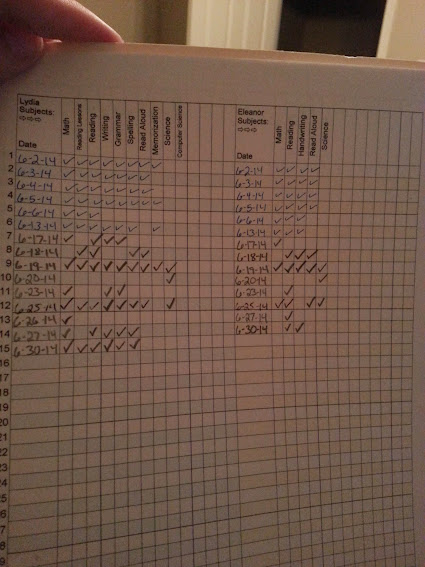 Lydia
Subjects:
Date
Math
Reading Lessons
Reading
Writing
Grammar
Spelling
Read Aloud
Memorization
Science
Computer Science
Eleanor
Subjects:
Date
Math
Reading
Handwriting
Read Aloud
Science
1 6-2-14 ✓ ✓ ✓ ✓ ✓ ✓ ✓ ✓ 6-2-14 ✓ ✓ ✓ ✓
2 6-3-14 ✓ ✓ ✓ ✓ ✓ ✓ ✓ ✓ 6-3-14 ✓ ✓ ✓ ✓
3 6-4-14 ✓ ✓ ✓ ✓ ✓ ✓ ✓ ✓ 6-4-14 ✓ ✓ ✓ ✓
4 6-5-14 ✓ ✓ ✓ ✓ ✓ ✓ ✓ ✓ 6-5-14 ✓ ✓ ✓ ✓
5 6-6-14 ✓ ✓ ✓ 6-6-14 ✓ ✓ ✓
6 6-13-14 ✓ ✓ ✓ ✓ ✓ ✓ ✓ 6-13-14 ✓ ✓ ✓
7 6-17-14 ✓ ✓ ✓ ✓ 6-17-14 ✓
8 6-18-14 ✓ ✓ ✓ ✓ 6-18-14 ✓ ✓ ✓
9 6-19-14 ✓ ✓ ✓ ✓ ✓ ✓ ✓ ✓ ✓ 6-19-14 ✓ ✓ ✓ ✓ ✓
10 6-20-14 ✓ 6-20-14 ✓
11 6-23-14 ✓ ✓ ✓ 6-23-14 ✓
12 6-25-14 ✓ ✓ ✓ ✓ ✓ ✓ ✓ ✓ 6-25-14 ✓ ✓ ✓ ✓
13 6-26-14 ✓ 6-27-14 ✓
14 6-27-14 ✓ ✓ ✓ ✓ ✓ 6-30-14 ✓ ✓
15 6-30-14 ✓ ✓ ✓ ✓ ✓ ✓
16
17
18
19
20
21
22
23
24
25
26